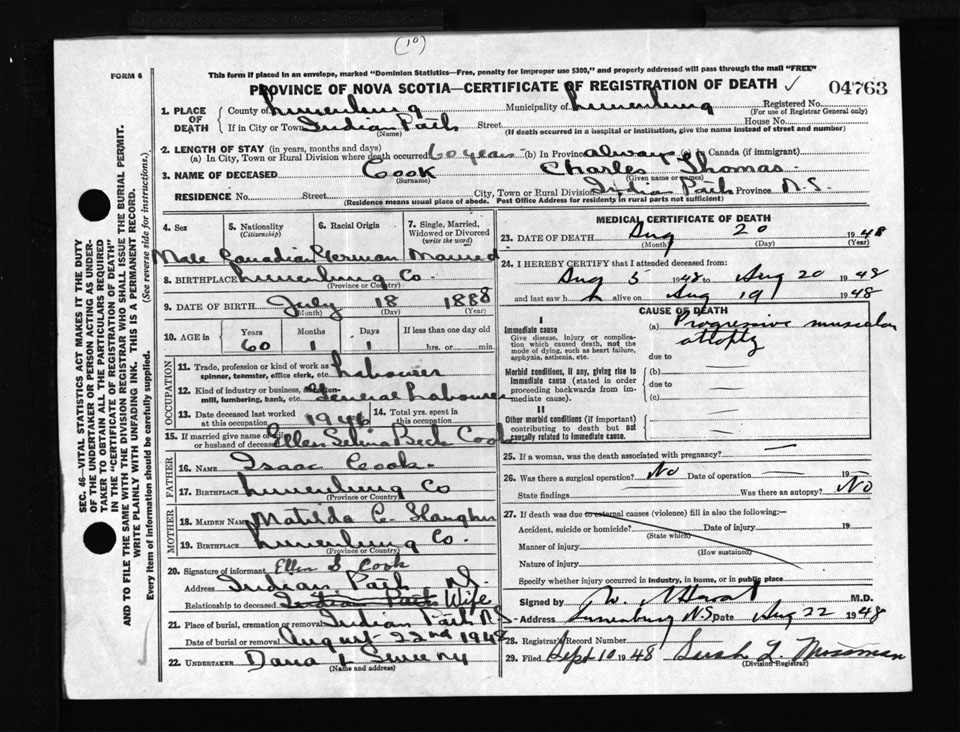 (10)
FORM 6
This form if placed in an envelope, marked "Dominion Statistics—Free, penalty for improper use $300," and properly addressed will pass through the mail "FREE"
PROVINCE OF NOVA SCOTIA—CERTIFICATE OF REGISTRATION OF DEATH ✓ 04763
SEC. 46—VITAL STATISTICS ACT MAKES IT THE DUTY
OF THE UNDERTAKER OR PERSON ACTING AS UNDER-
TAKER TO OBTAIN ALL THE PARTICULARS REQUIRED
IN THE "CERTIFICATE OF REGISTRATION OF DEATH"
AND TO FILE THE SAME WITH THE DIVISION REGISTRAR WHO SHALL ISSUE THE BURIAL PERMIT.
WRITE PLAINLY WITH UNFADING INK. THIS IS A PERMANENT RECORD.
Every item of information should be carefully supplied. (See reverse side for instructions.)
1. PLACE OF DEATH
County of Lunenburg Municipality of Lunenburg Registered No.
(For use of Registrar General only)
If in City or Town Indian Path Street House No.
(Name) (If death occurred in a hospital or institution, give the name instead of street and number)
2. LENGTH OF STAY (in years, months and days)
(a) In City, Town or Rural Division where death occurred 60 years (b) In Province always (c) In Canada (if immigrant)
3. NAME OF DECEASED Cook Charles Thomas
(Surname) (Given name or names)
RESIDENCE No. Street City, Town or Rural Division Indian Path Province N.S.
(Residence means usual place of abode. Post Office Address for residents in rural parts not sufficient)
4. Sex 5. Nationality (Citizenship) 6. Racial Origin 7. Single, Married, Widowed or Divorced (write the word)
Male Canadian German Married
8. BIRTHPLACE Lunenburg Co.
(Province or Country)
9. DATE OF BIRTH July 18 1888
(Month) (Day) (Year)
10. AGE in Years Months Days If less than one day old
60 1 1 hrs. or min.
OCCUPATION
11. Trade, profession or kind of work as
spinner, teamster, office clerk, etc. Labourer
12. Kind of industry or business,
mill, lumbering, bank, etc. General Labourer
13. Date deceased last worked
at this occupation 1946
14. Total yrs. spent in
this occupation
15. If married give name of
or husband of deceased Ellen Selina Beck Cook
FATHER
16. NAME Isaac Cook
17. BIRTHPLACE Lunenburg Co
(Province or Country)
MOTHER
18. MAIDEN NAME Matilda C.
19. BIRTHPLACE Lunenburg Co.
(Province or Country)
20. Signature of informant Ellen S. Cook
Address Indian Path N.S.
Relationship to deceased Indian Path Wife
21. Place of burial, cremation or removal Indian Path N.S.
Date of burial or removal August 22nd 1948
22. UNDERTAKER Dana L Sweeny
(Name and address)
MEDICAL CERTIFICATE OF DEATH
23. DATE OF DEATH Aug 20 1948
(Month) (Day) (Year)
24. I HEREBY CERTIFY that I attended deceased from:
Aug 5 1948 to Aug 20 1948
and last saw h alive on Aug 19 1948
CAUSE OF DEATH
I
Immediate cause
Give disease, injury or complication
which caused death, not the
mode of dying, such as heart failure,
asphyxia, asthenia, etc.
(a) Progressive muscular
atrophy
due to
Morbid conditions, if any, giving rise to
immediate cause (stated in order
proceeding backwards from immediate
cause).
(b)
due to
(c)
II
Other morbid conditions (if important)
contributing to death but not
causally related to immediate cause.
25. If a woman, was the death associated with pregnancy?
26. Was there a surgical operation? No Date of operation 19
State findings Was there an autopsy? No
27. If death was due to external causes (violence) fill in also the following:—
Accident, suicide or homicide? Date of injury 19
(State which)
Manner of injury
(How sustained)
Nature of injury
Specify whether injury occurred in industry, in home, or in public place
Signed by M.D.
Address Lunenburg N.S Date Aug 22 1948
28. Registrar's Record Number
29. Filed Sept 10 1948 L. Mossman
(Division Registrar)